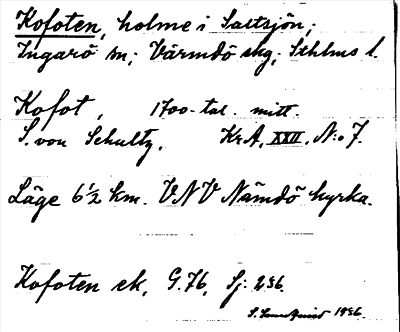 Kofoten, holme i Saltsjön;
Ingarö sn; Värmdö skg; Sthlms l.
Kofot, 1700-tal. mitt.
S. von Schultz, KrA, XXII, N:o 7.
Läge 6 1/2 km. VNV Nämdö kyrka.
Kofoten ek, G.76, Sj: 236.
1936